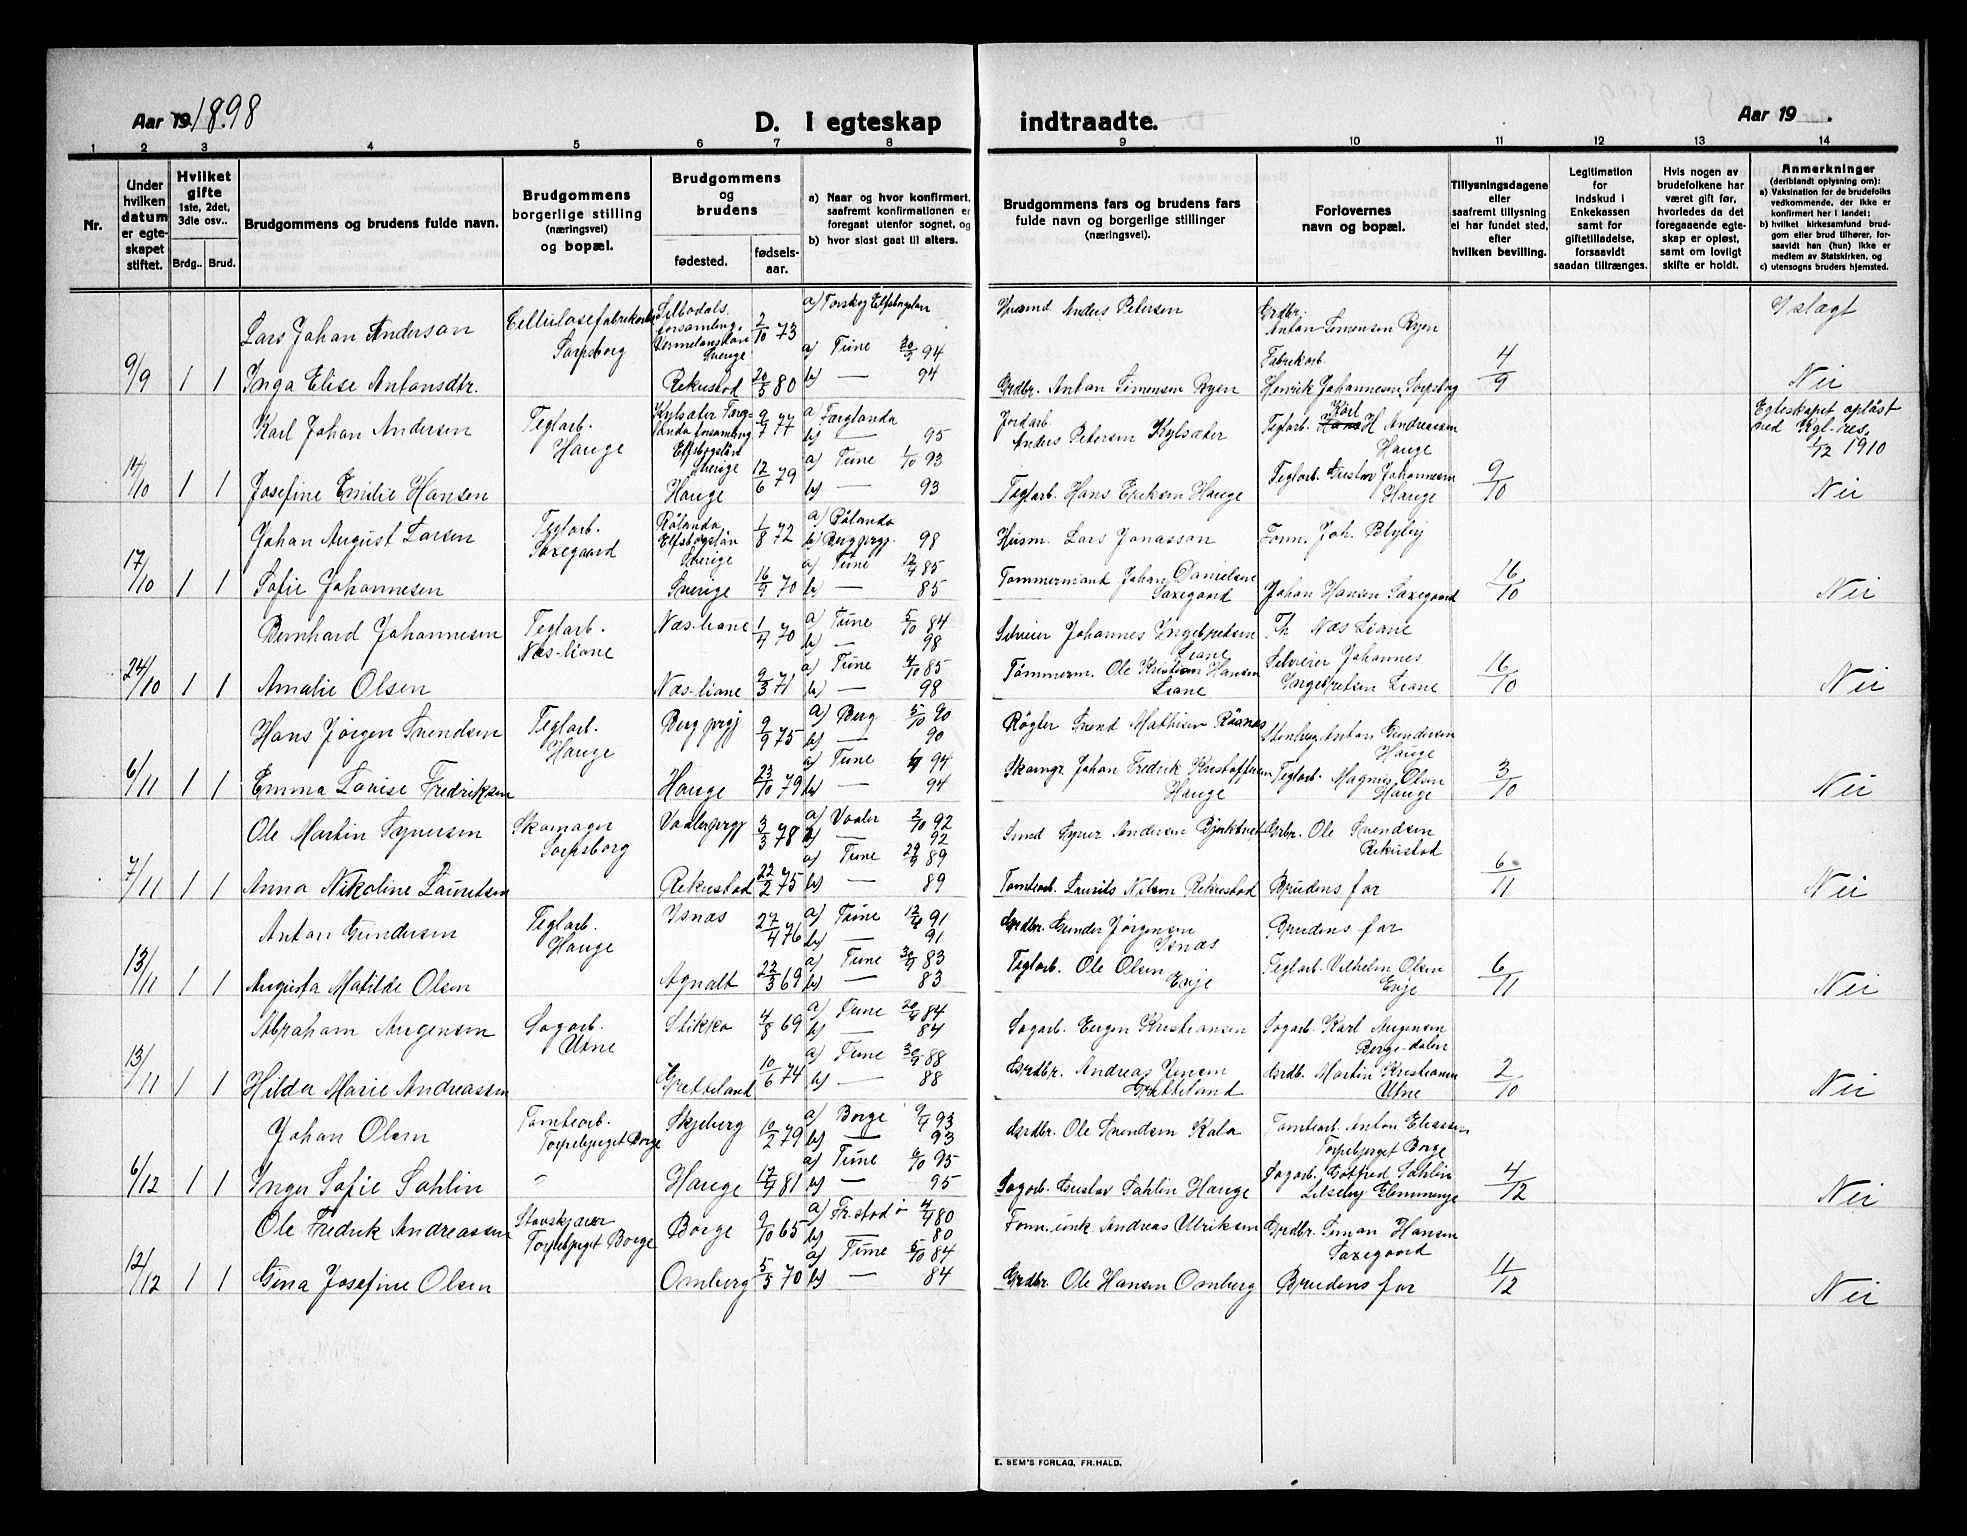 Aar 19 1898
D. I egteskap indtraadte.
Aar 19 .
1 2 3 4 5 6 7 8 9 10 11 12 13 14
Nr.
Under hvilken datum er egte-skapet stiftet.
Hvilket gifte 1ste, 2det, 3die osv..
Brdg.. Brud.
Brudgommens og brudens fulde navn.
Brudgommens borgerlige stilling (næringsvei) og bopæl.
Brudgommens og brudens
fødested. fødsels-aar.
a) Naar og hvor konfirmert, saafremt konfirmationen er foregaat utenfor sognet, og
b) hvor sidst gaat til alters.
Brudgommens fars og brudens fars fulde navn og borgerlige stillinger (næringsvei).
Forlovernes navn og bopæl.
Tillysningsdagene eller saafremt tillysning ei har fundet sted, efter hvilken bevilling.
Legitimation for indskud i Enkekassen samt for giftetilladelse, forsaavidt saadan tiltrænges.
Hvis nogen av brudefolkene har været gift før, hvorledes da det foregaaende egte-skap er opløst, samt om lovligt skifte er holdt.
Anmerkninger (deriblandt oplysning om):
a) Vaksination for de brudefolks vedkommende, der ikke er konfirmert her i landet;
b) hvilket kirkesamfund brud-gom eller brud tilhører, for-saavidt han (hun) ikke er medlem av Statskirken, og
c) utensogns bruders hjemsted.
Lars Johan Anderson Cellulosefabrikarb Sarpsborg Sverige 2/10 73 a) Anders Petersen Grdbr. Anton Simensen Ryen I slægt
9/9 1 1 Inga Elise Antonsdtr. Rekustad 20/5 80 a) Tune 94 b) — 94 Grdbr. Anton Simensen Ryen Fabrikarb. Henrik Johannesen Sarpsborg 4/9 Nei
Karl Johan Andersen Teglarb. Hauge Sverige 9/7 77 a) Færglanda b) — 95 Jordarb. Anders Petersen Kylsæter Teglarb. Karl H Andreassen Hauge Egteskapet opløst ved Kgl. res. 1/12 1910
14/10 1 1 Josefine Emilie Hansen Hauge 12/6 79 a) Tune 1/10 93 b) — 93 Teglarb. Hans Eriksen Hauge Teglarb. Gustav Johannesen Hauge 9/10 Nei
Johan August Larsen Teglarb. Saxegaard Rølanda Elfsborgslän Sverige 1/8 72 a) Rølanda b) Berg prgj. 98 Husm. Lars Jonasson Form. Joh. Blyby
17/10 1 1 Sofie Johannesen Sverige 16/9 70 a) Tune 85 b) — 85 Tømmermand Johan Danielsen Saxegaard Johan Hansen Saxegaard 16/10 Nei
Bernhard Johannesen Teglarb. Næs-liane Næs-liane 1/4 70 a) Tune 5/10 84 b) — 98 Selveier Johannes Ingebretsen Liane Th Næs Liane
24/10 1 1 Amalie Olsen Næs-liane 9/3 71 a) Tune 4/10 85 b) — 98 Tømmerm. Ole Kristian Hansen Liane Selveier Johannes Ingebretsen Liane 16/10 Nei
Hans Jørgen Svendsen Teglarb. Hauge Berg prgj 9/9 75 a) Berg 5/10 90 b) — 90 Røgter Svend Mathisen Anton Gundersen Hauge
6/11 1 1 Emma Lovise Fredriksen Hauge 23/10 79 a) Tune 94 b) — 94 Skomgr. Johan Fredrik Kristoffersen Hauge Teglarb. Magnus Olsen Hauge 3/10 Nei
Ole Martin Syversen Skomager Sarpsborg Vaaler prgj 3/3 78 a) Vaaler 2/10 92 b) — 92 Smed Syver Andersen Grbr. Ole Svendsen Rekustad
7/11 1 1 Anna Nikoline Lauritsen Rekustad 22/2 75 a) Tune 29/9 89 b) — 89 Tomtearb. Laurits Nilsen Rekustad Brudens far 6/11 Nei
Anton Gundersen Teglarb. Hauge Isnæs 27/4 76 a) Tune 91 b) — 91 Grdbr. Gunder Jørgensen Isnæs Brudens far
13/11 1 1 Augusta Matilde Olsen Agnalt 22/3 69 a) Tune 30/9 83 b) — 83 Teglarb. Ole Olsen Enje Teglarb. Vilhelm Olsen Enje 6/11 Nei
Abraham Augensen Sagarb. Utne Stikka 4/8 69 a) Tune 84 b) — 84 Sagarb. Eugen Kristiansen Sagarb. Karl Augensen Berge-dalen
13/11 1 1 Hilda Marie Andreassen Grötteland 10/6 74 a) Tune 30/9 88 b) — 88 Grdbr. Andreas Jensen Grötteland Grdb. Martin Kristiansen Utne 2/10 Nei
Johan Olsen Tomtearb. Torpebjerget Borge Skjeberg 10/2 79 a) Borge 93 b) — 93 Grdbr. Ole Svendsen Kala Tomtearb. Anton Eliassen Torpebjerget Borge
6/12 1 1 Inga Sofie Sahlin " Hauge 81 a) Tune 95 b) — 95 Sagarb. Gustav Sahlin Hauge Sagarb. Gotfred Sahlin Lilleby Glemminge 4/12 Nei
Ole Fredrik Andreassen Stavskjærer Torpebjerget Borge Borge 9/10 65 a) Fr.stad 80 b) — 80 Andreas Ulriksen Grdbr. Simon Hansen Saxegaard
12/12 1 1 Gina Josefine Olsen Omberg 5/5 70 a) Tune 5/10 84 b) — 84 Grdbr. Ole Hansen Omberg Brudens far 11/12 Nei
E. SEM'S FORLAG, FR.HALD.